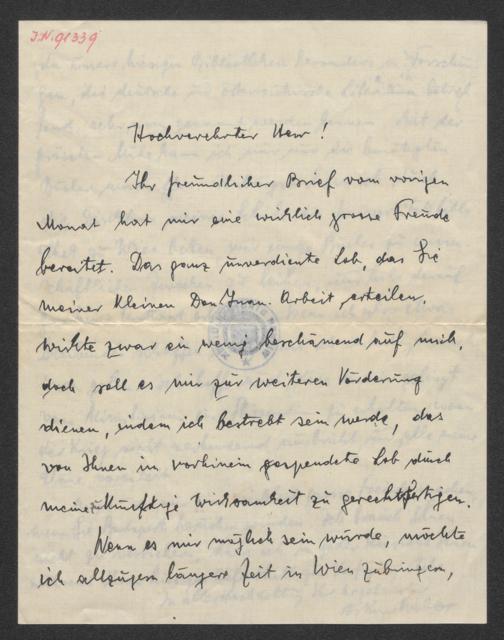 I.N. 91339
Hochverehrter Herr!
Ihr freundlicher Brief vom vorigen
Monat hat mir eine wirklich grosse Freude
bereitet. Das ganz unverdiente Lob, das Sie
meiner kleinen Don Juan-Arbeit erteilen,
wirkte zwar ein wenig beschämend auf mich,
doch soll es mir zur weiteren Vörderung
dienen, indem ich bestrebt sein werde, das
von Ihnen in vorhinein gespendete Lob durch
meine künftige Wirksamkeit zu gerechtfertigen.
Wenn es mir möglich sein würde, möchte
ich allzugern längere Zeit in Wien zubringen,